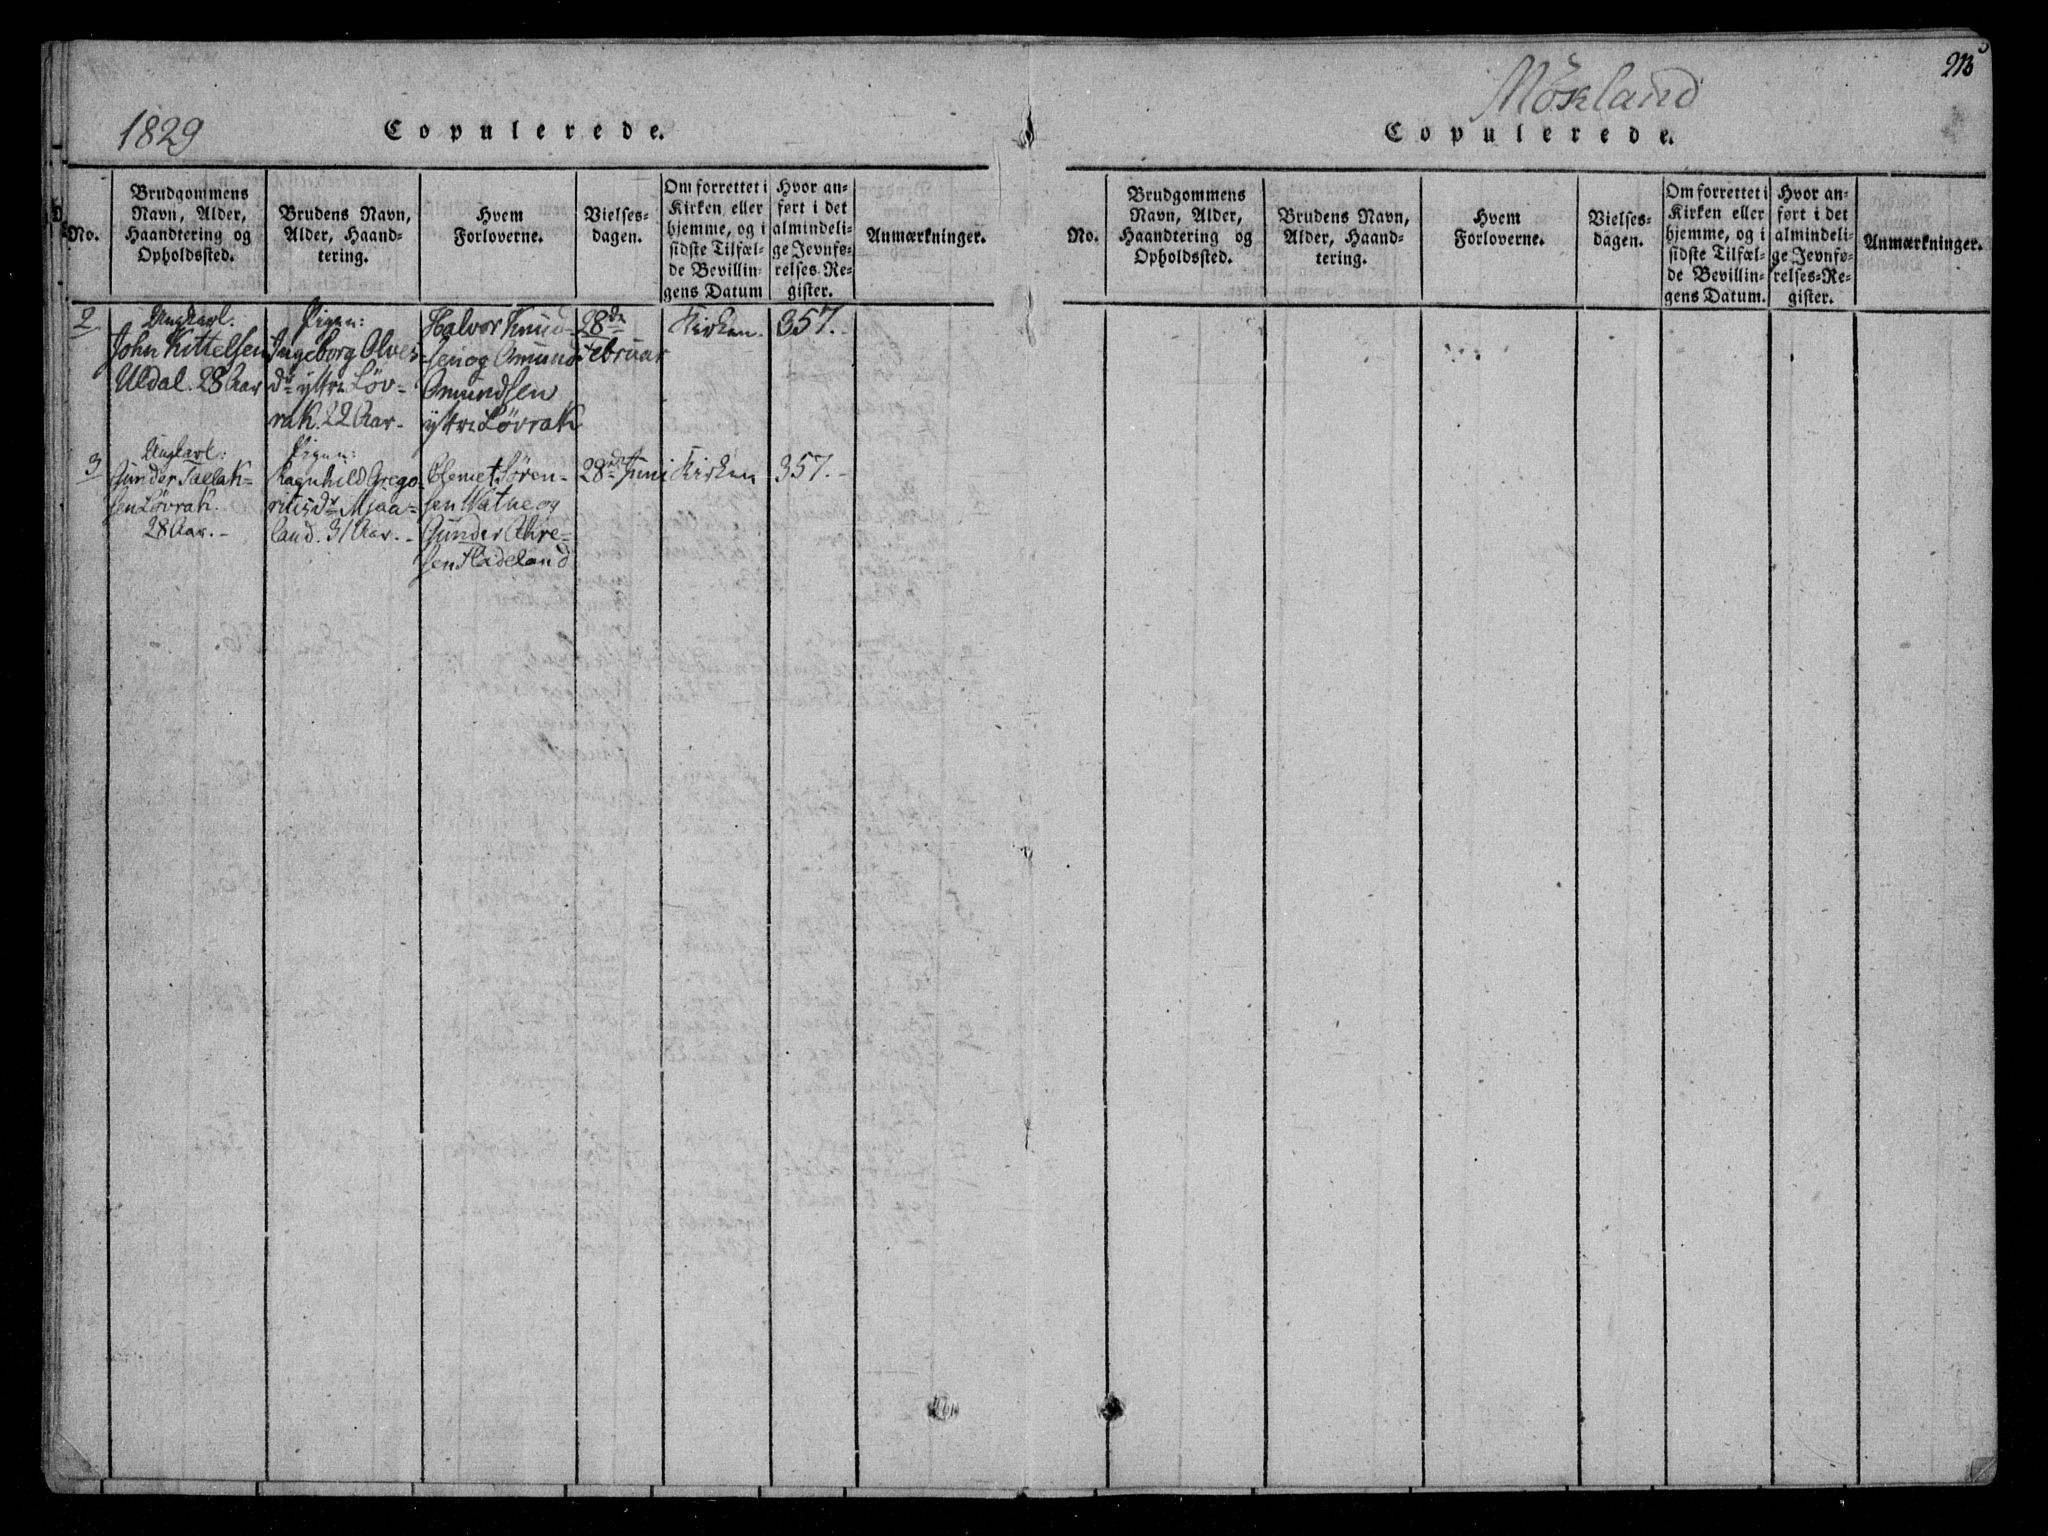 1829
Copulerede.
No.
Brudgommens
Navn, Alder,
Haandtering og
Opholdssted.
Brudens Navn,
Alder, Haand-
tering.
Hvem
Forloverne.
Vielses-
dagen.
Om forrettet i
Kirken eller
hjemme, og i
sidste Tilfæl-
de Bevillin-
gens Datum
Hvor an-
ført i det
almindeli-
ge Jevnfø-
relses-Re-
gister.
Anmærkninger.
2
Ungkarl.
John Kittelsen
Uldal. 28 Aar
Pigen:
Ingeborg Olves-
dr yttre Løv-
rak. 22 Aar.
Halvor Knud-
sen og Omund
Omundsen
yttre Løvrak
28de
Februar
Kirken.
357.
3
Ungkarl:
Gunder Tallak-
sen Løvrak.
28 Aar.
Pigen:
Ragnhild Grego-
riusdr Mjaa-
land. 31 Aar.
Clemet Søren-
sen Watne og
Gunder
sen Fladeland
28de Juni
Kirken
357.
Mösland
Copulerede.
No.
Brudgommens
Navn, Alder,
Haandtering og
Opholdssted.
Brudens Navn,
Alder, Haand-
tering.
Hvem
Forloverne.
Vielses-
dagen.
Om forrettet i
Kirken eller
hjemme, og i
sidste Tilfæl-
de Bevillin-
gens Datum.
Hvor an-
ført i det
almindeli-
ge Jevnfø-
relses-Re-
gister.
Anmærkninger.